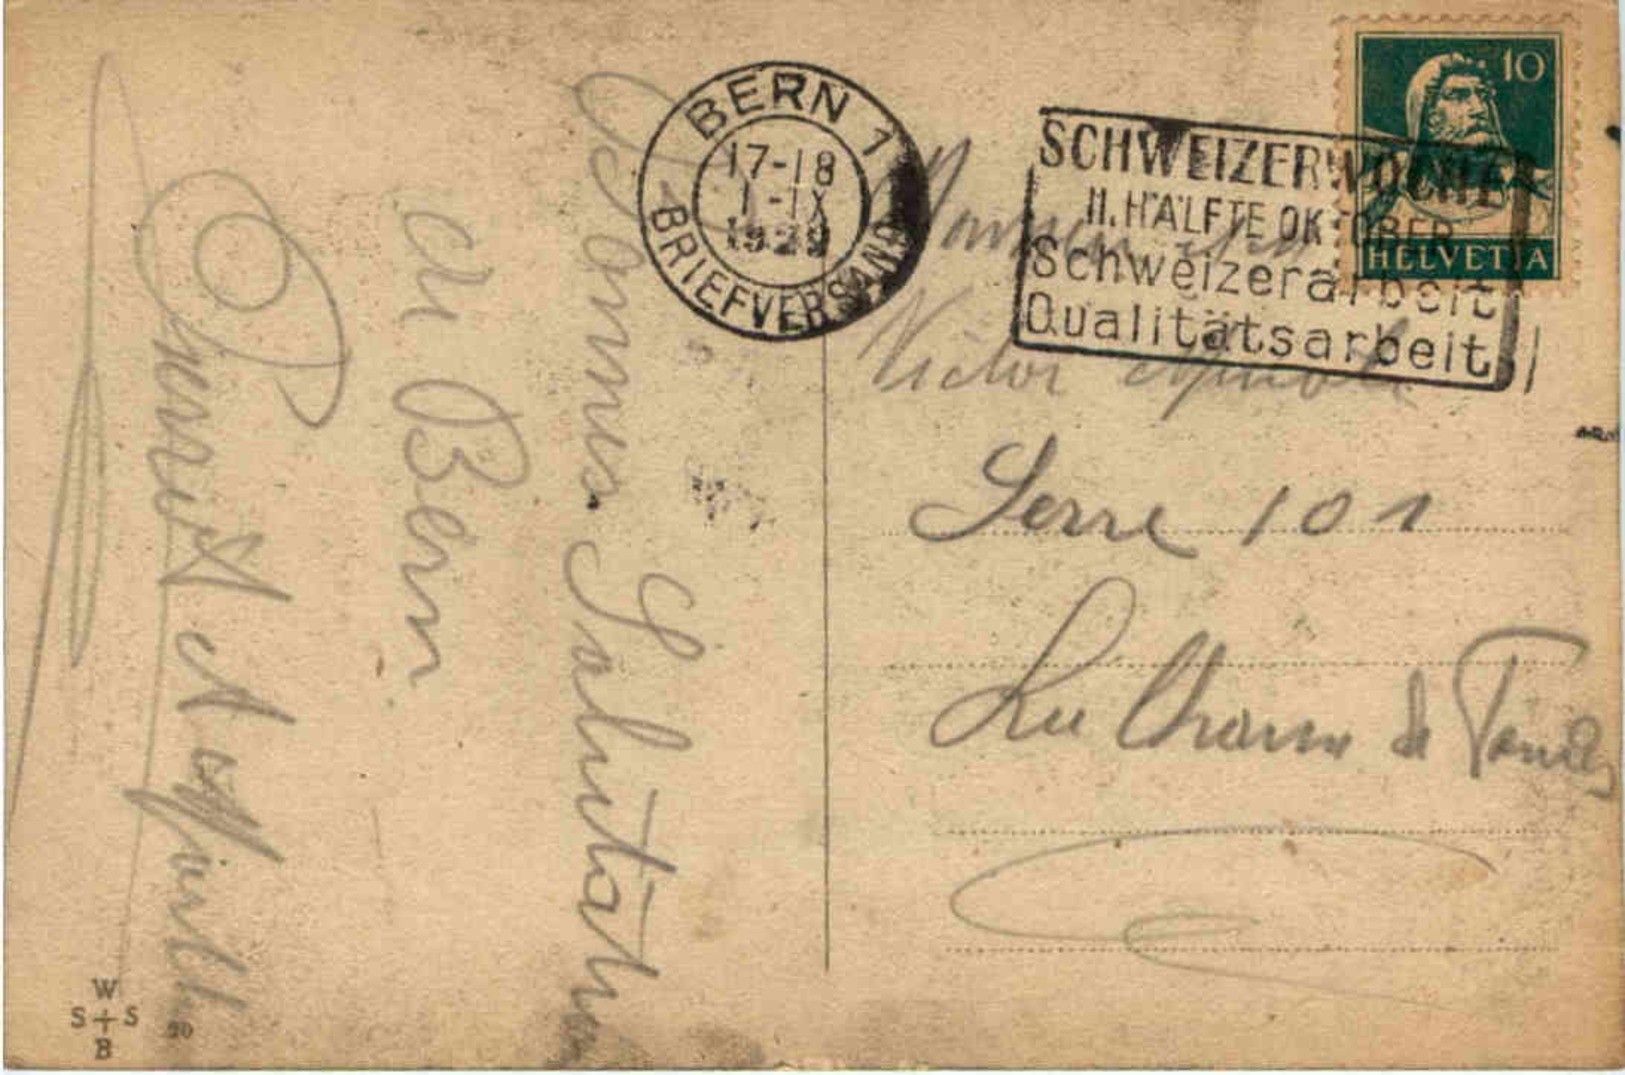 Bonnes Salutations
de Bern
BERN 1
17-18
1-IX
1929
BRIEFVERSAND
SCHWEIZERWOCHE
II. HÄLFTE OKTOBER
Schweizerarbeit
Qualitätsarbeit
10
HELVETIA
Monsieur
Victor
Serre 101
La Chaux de Fonds
W
S S
B